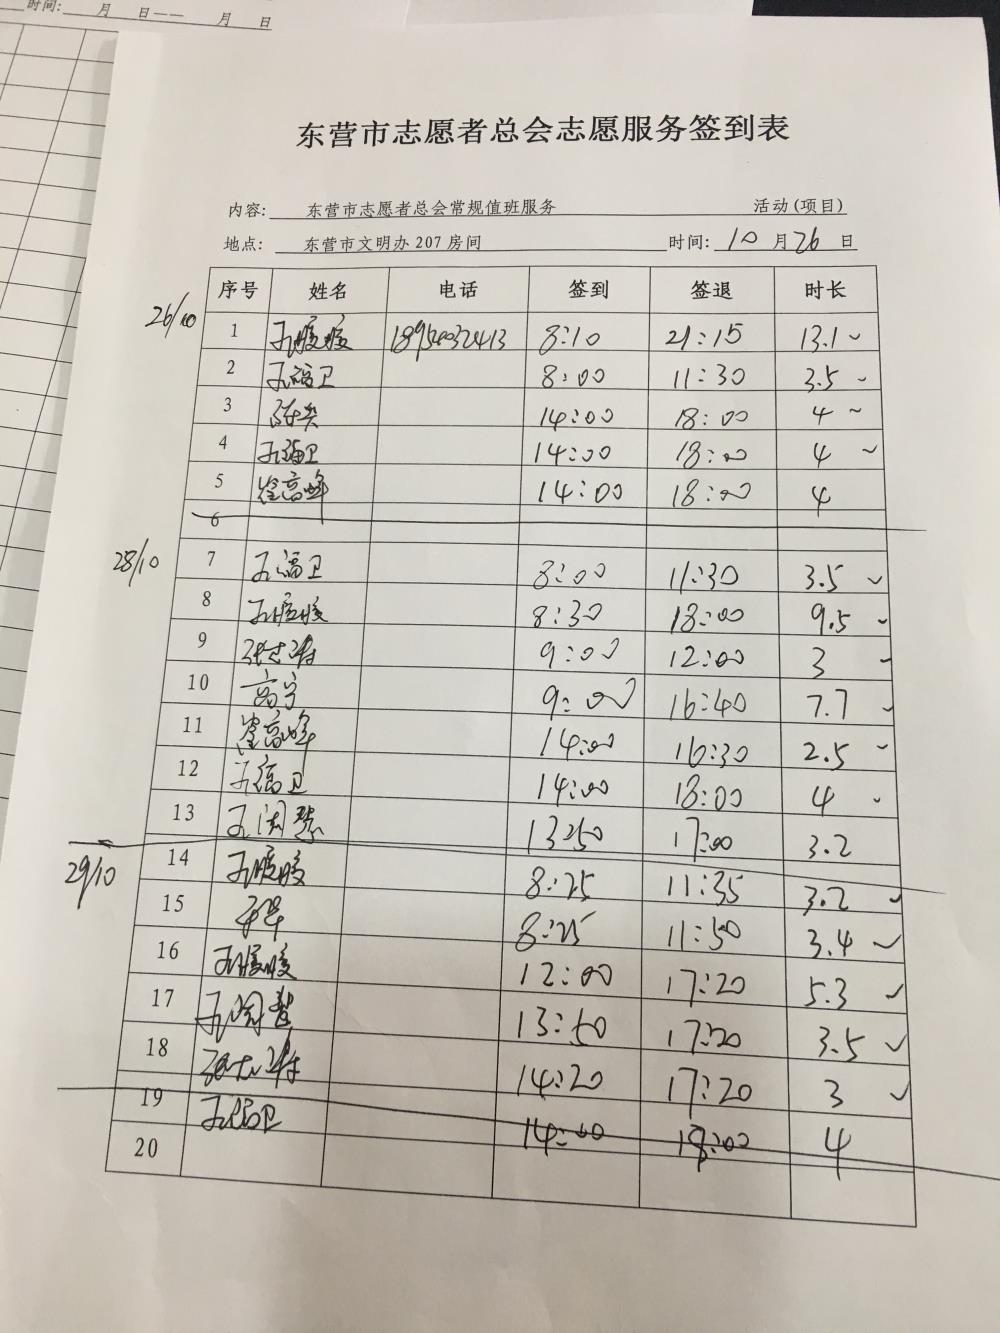 时间: 月 日—— 月 日
东营市志愿者总会志愿服务签到表
内容: 东营市志愿者总会常规值班服务 活动(项目)
地点: 东营市文明办 207 房间 时间: 10 月 26 日
序号 姓名 电话 签到 签退 时长
26/10
1 18954032413 8:10 21:15 13.1
2 孔福卫 8:00 11:30 3.5
3 14:00 18:00 4
4 孔福卫 14:00 18:00 4
5 高峰 14:00 18:00 4
6
28/10
7 孔福卫 8:00 11:30 3.5
8 8:30 18:00 9.5
9 9:00 12:00 3
10 高宁 9:00 16:40 7.7
11 高峰 14:00 16:30 2.5
12 孔福卫 14:00 18:00 4
13 孔 13:50 17:00 3.2
29/10
14 8:25 11:35 3.2
15 8:25 11:50 3.4
16 12:00 17:20 5.3
17 孔 13:50 17:20 3.5
18 14:20 17:20 3
19 孔福卫 14:00 18:00 4
20